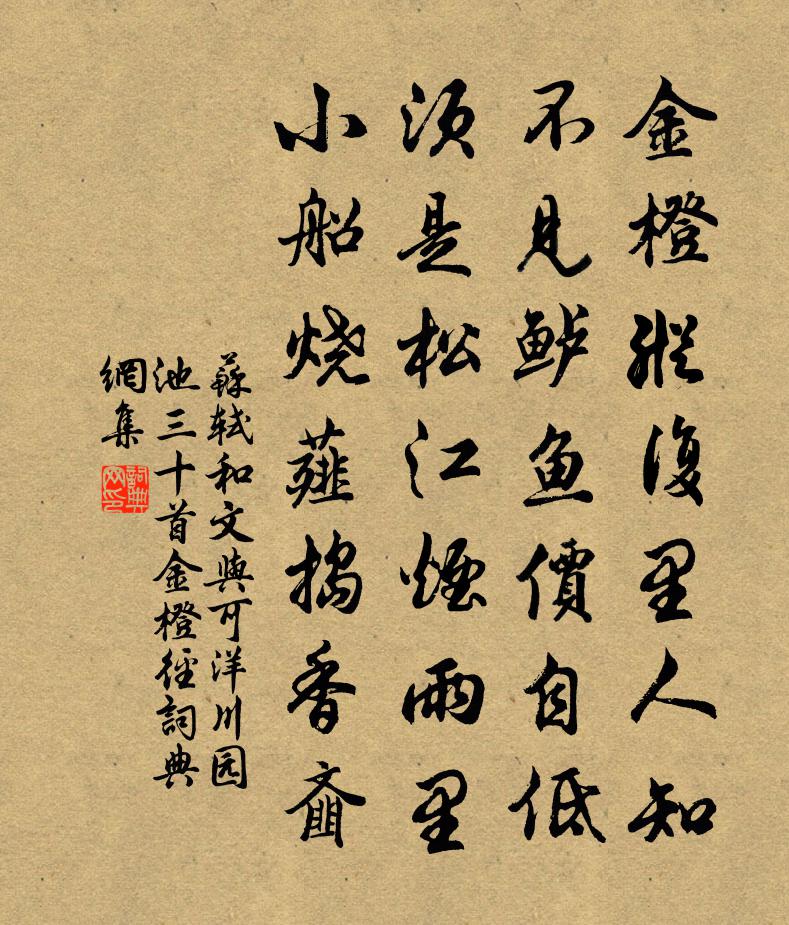 金橙縱復里人知
不見鲈鱼價自低
須是松江煙雨里
小船烧薤搗香齑
蘇軾和文與可洋川园
池三十首金橙徑詞典
網集
詞典網印